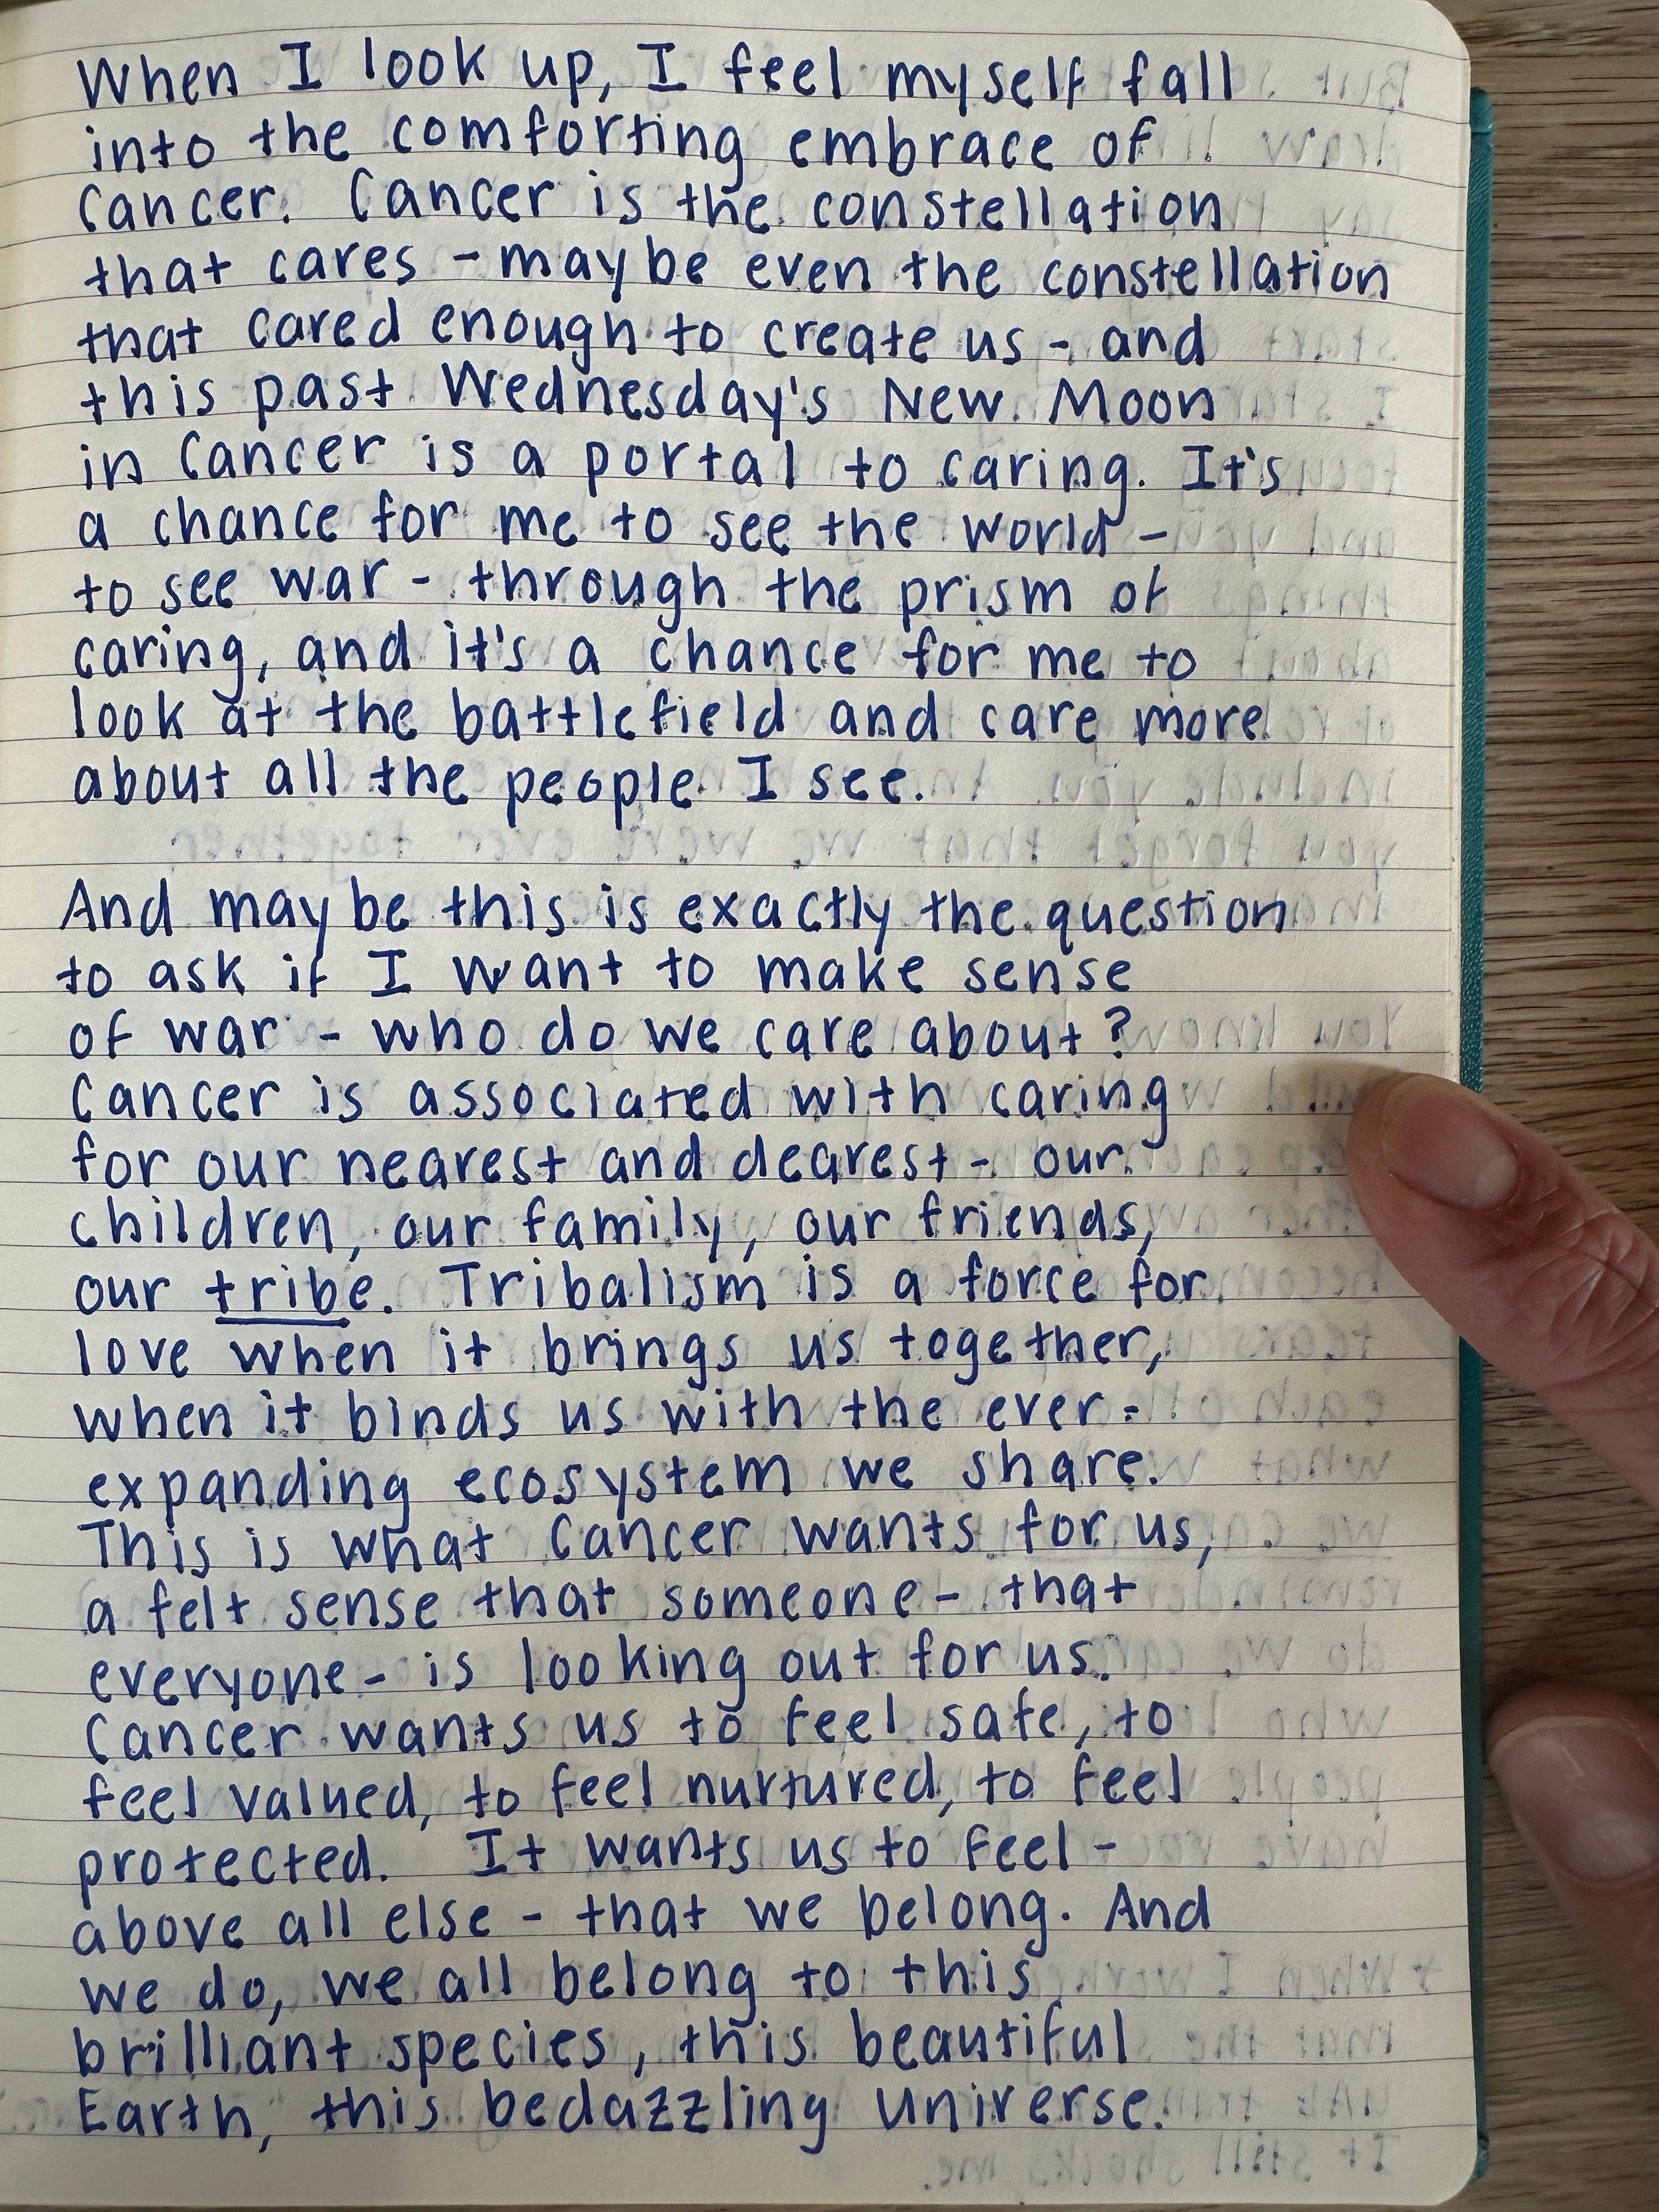 When I look up, I feel myself fall
into the comforting embrace of
Cancer. Cancer is the constellation
that cares - maybe even the constellation
that cared enough to create us - and
this past Wednesday's New Moon
in Cancer is a portal to caring. It's
a chance for me to see the world -
to see war - through the prism of
caring, and it's a chance for me to
look at the battlefield and care more
about all the people I see.
And maybe this is exactly the question
to ask if I want to make sense
of war - who do we care about?
Cancer is associated with caring
for our nearest and dearest - our
children, our family, our friends,
our tribe. Tribalism is a force for
love when it brings us together,
when it binds us with the ever-
expanding ecosystem we share.
This is what Cancer wants for us,
a felt sense that someone - that
everyone - is looking out for us.
Cancer wants us to feel safe, to
feel valued, to feel nurtured, to feel
protected. It wants us to feel -
above all else - that we belong. And
we do, we all belong to this
brilliant species, this beautiful
Earth, this bedazzling universe.